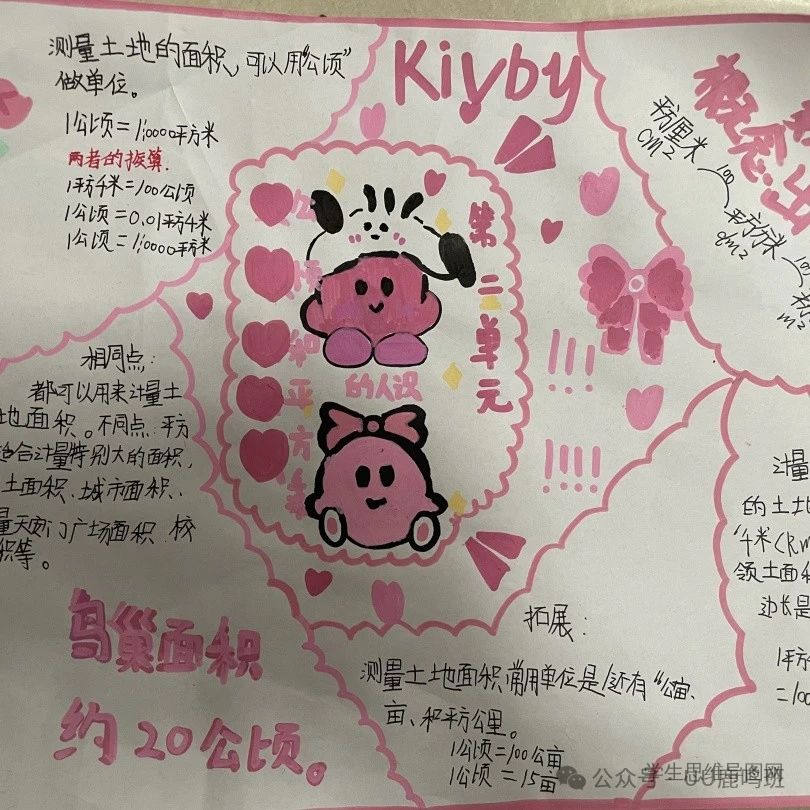 测量土地的面积，可以用“公顷”
做单位。
1公顷=1,0000平方米
两者的换算.
1平方千米=100公顷
1公顷=0.01平方千米
1公顷=1,0000平方米
Kiyby
概念
平方厘米
cm2
100
平方分米
dm2
100
m2
第二单元
公顷和平方
的人识
相同点：
都可以用来计量土
地面积。不同点 平方
适合计量特别大的面积，
土面积、城市面积、
量天安门广场面积 校
积等。
鸟巢面积
约20公顷。
拓展：
测量土地面积常用单位是/还有“公亩、
亩、和平方公里。
1公顷=100公亩
1公顷=15亩
计量
的土地
领土面积
边长是
1平方
=100
学生思维导图网
公众号
鹿鸣班